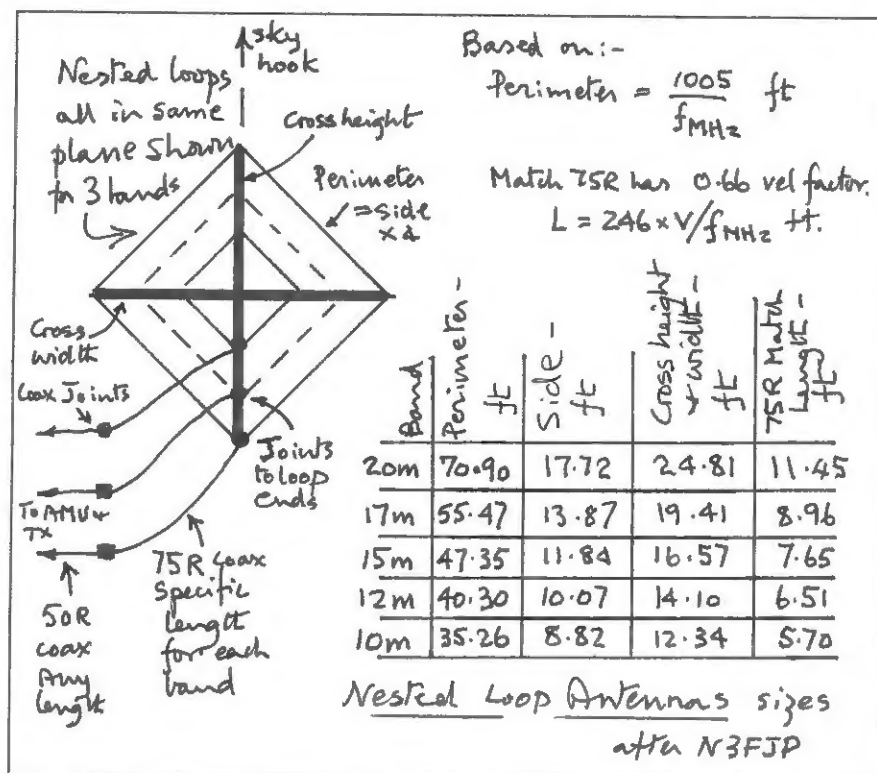 sky
hook
Nested loops
all in same
plane shown
for 3 bands
Cross height
Perimeter
=side
x 4
Cross
width
Coax Joints
To AMU &
TX
Joints
to loop
ends
50R
coax
Any
length
75R coax
specific
length
for each
band
Based on:-
Perimeter = 1005 / fMHz ft
Match 75R has 0.66 vel factor.
L = 246 x V/fMHz ft.
Band Perimeter - ft Side - ft Cross height & width - ft 75R Match Length - ft
20m 70.90 17.72 24.81 11.45
17m 55.47 13.87 19.41 8.96
15m 47.35 11.84 16.57 7.65
12m 40.30 10.07 14.10 6.51
10m 35.26 8.82 12.34 5.70
Nested Loop Antennas sizes
after N3FJP